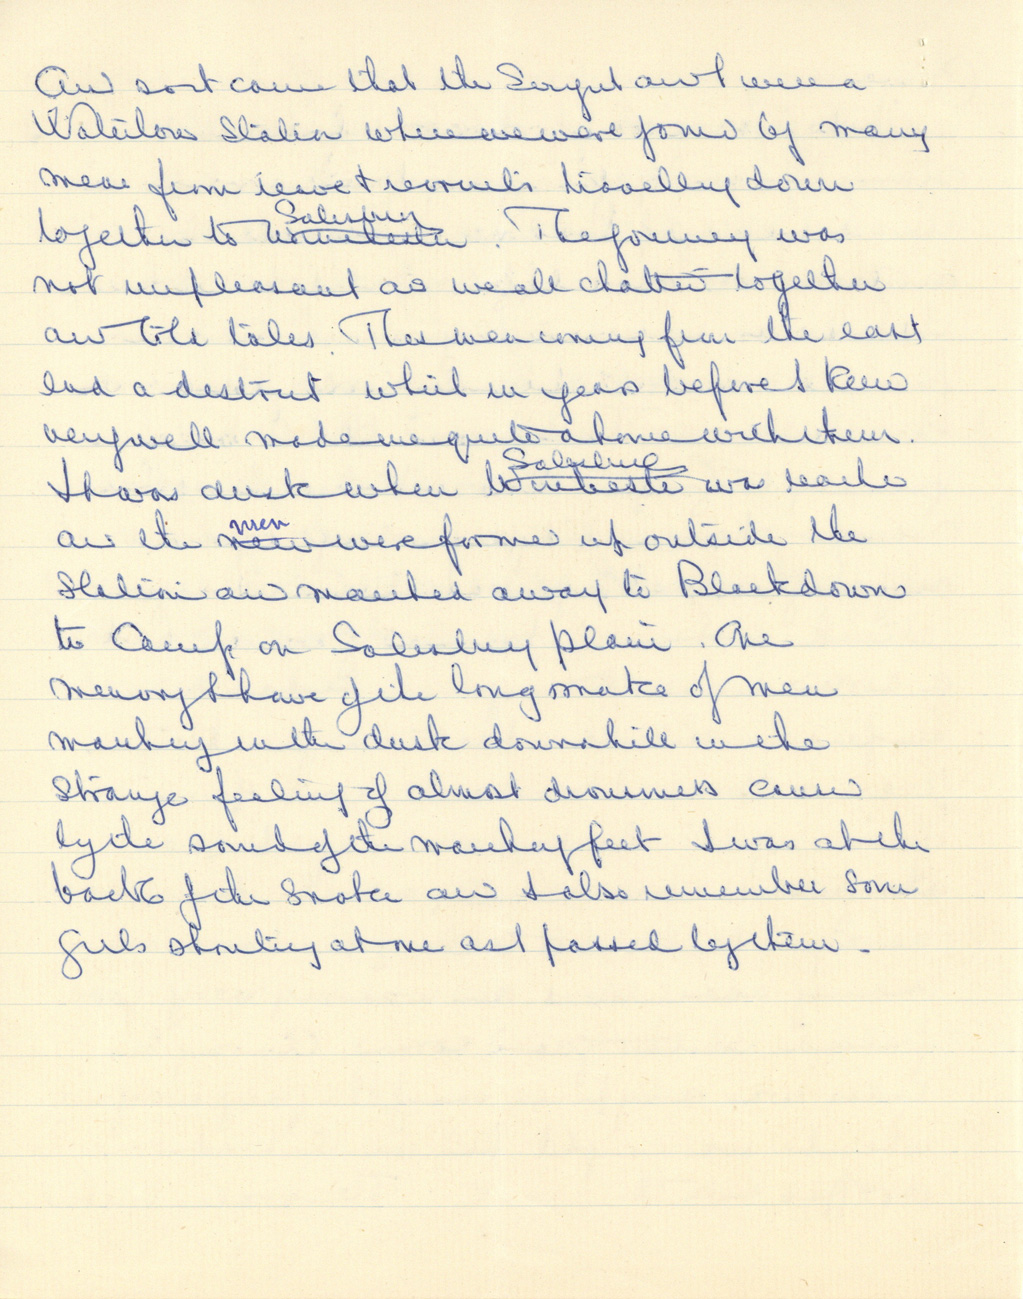 And so it came that the Sergeant and I were a
Waterloo Station where we were joined by many
men from leave & recruits travelling down
together to Salisbury Winchester. The journey was
not unpleasant as we all chatted together
and told tales. The men coming from the east
end a district which in years before I knew
very well made me quite at home with them.
It was dusk when Salisbury Winchester was reached
and the men were formed up outside the
Station and marched away to Blackdown
to Camp on Salisbury plain. One
memory I have of the long snake of men
marching in the dusk downhill in the
strange feeling of almost drowsiness caused
by the sound of the marching feet I was at the
back of the snake and I also remember some
girls shouting at me as I passed by them -